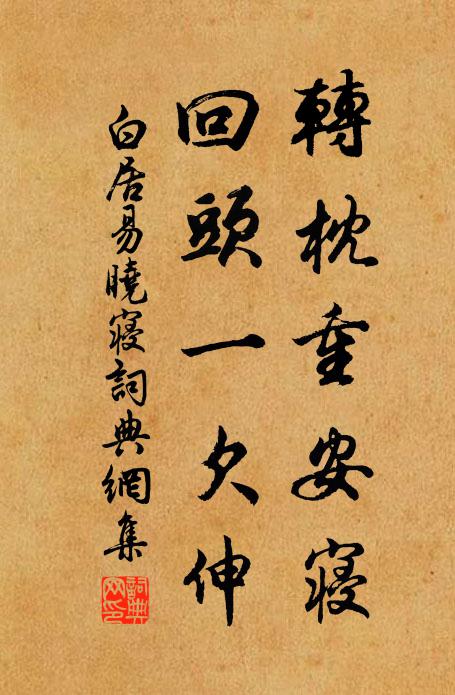 轉枕重安寢
回頭一欠伸
白居易曉寢詞典網集
詞典網印